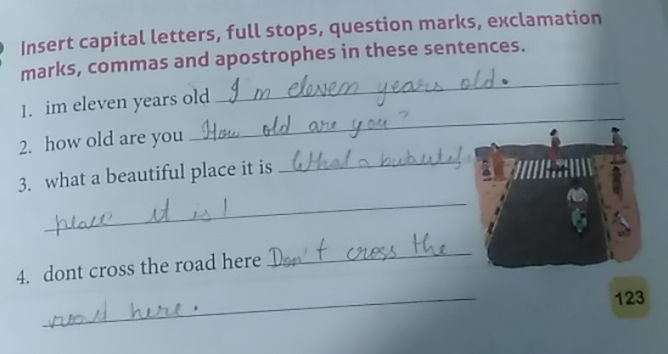 Insert capital letters, full stops, question marks, exclamation
marks, commas and apostrophes in these sentences.
1. im eleven years old I m eleven years old.
2. how old are you How old are you?
3. what a beautiful place it is What a
place it is!
4. dont cross the road here Don't cross the
road here.
123